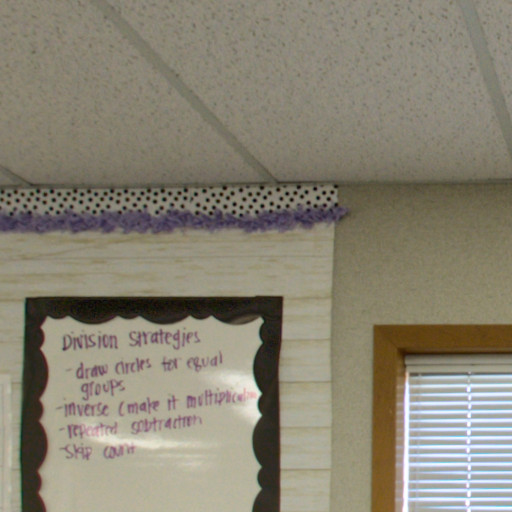 Division Strategies
- draw circles for equal
groups
- inverse (make it multiplication
- repeated subtraction
- skip count